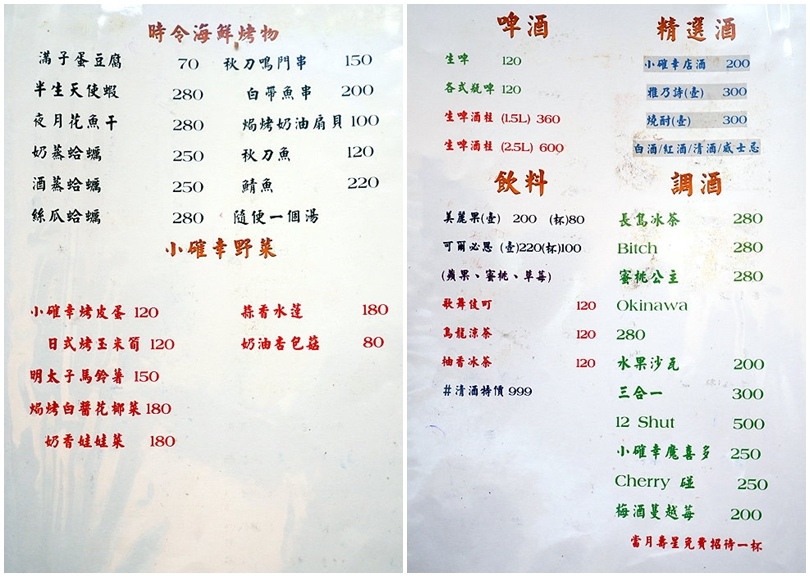 時令海鮮烤物
滿子蛋豆腐 70
半生天使蝦 280
夜月花魚干 280
奶蒸蛤蠣 250
酒蒸蛤蠣 250
絲瓜蛤蠣 280
秋刀鳴門串 150
白帶魚串 200
焗烤奶油扇貝 100
秋刀魚 120
鯖魚 220
隨便一個湯
小確幸野菜
小確幸烤皮蛋 120
日式烤玉米筍 120
明太子馬鈴薯 150
焗烤白醬花椰菜 180
奶香娃娃菜 180
蒜香水蓮 180
奶油杏包菇 80
啤酒
生啤 120
各式瓶啤 120
生啤酒柱 (1.5L) 360
生啤酒柱 (2.5L) 600
飲料
美麗果(壺) 200 (杯)80
可爾必思 (壺)220(杯)100
(蘋果、蜜桃、草莓)
歌舞伎町 120
烏龍涼茶 120
柚香冰茶 120
#清酒特價 999
精選酒
小確幸店酒 200
雅乃詩(壺) 300
燒酎(壺) 300
白酒/紅酒/清酒/威士忌
調酒
長島冰茶 280
Bitch 280
蜜桃公主 280
Okinawa
280
水果沙瓦 200
三合一 300
12 Shut 500
小確幸魔喜多 250
Cherry 碰 250
梅酒蔓越莓 200
當月壽星免費招待一杯